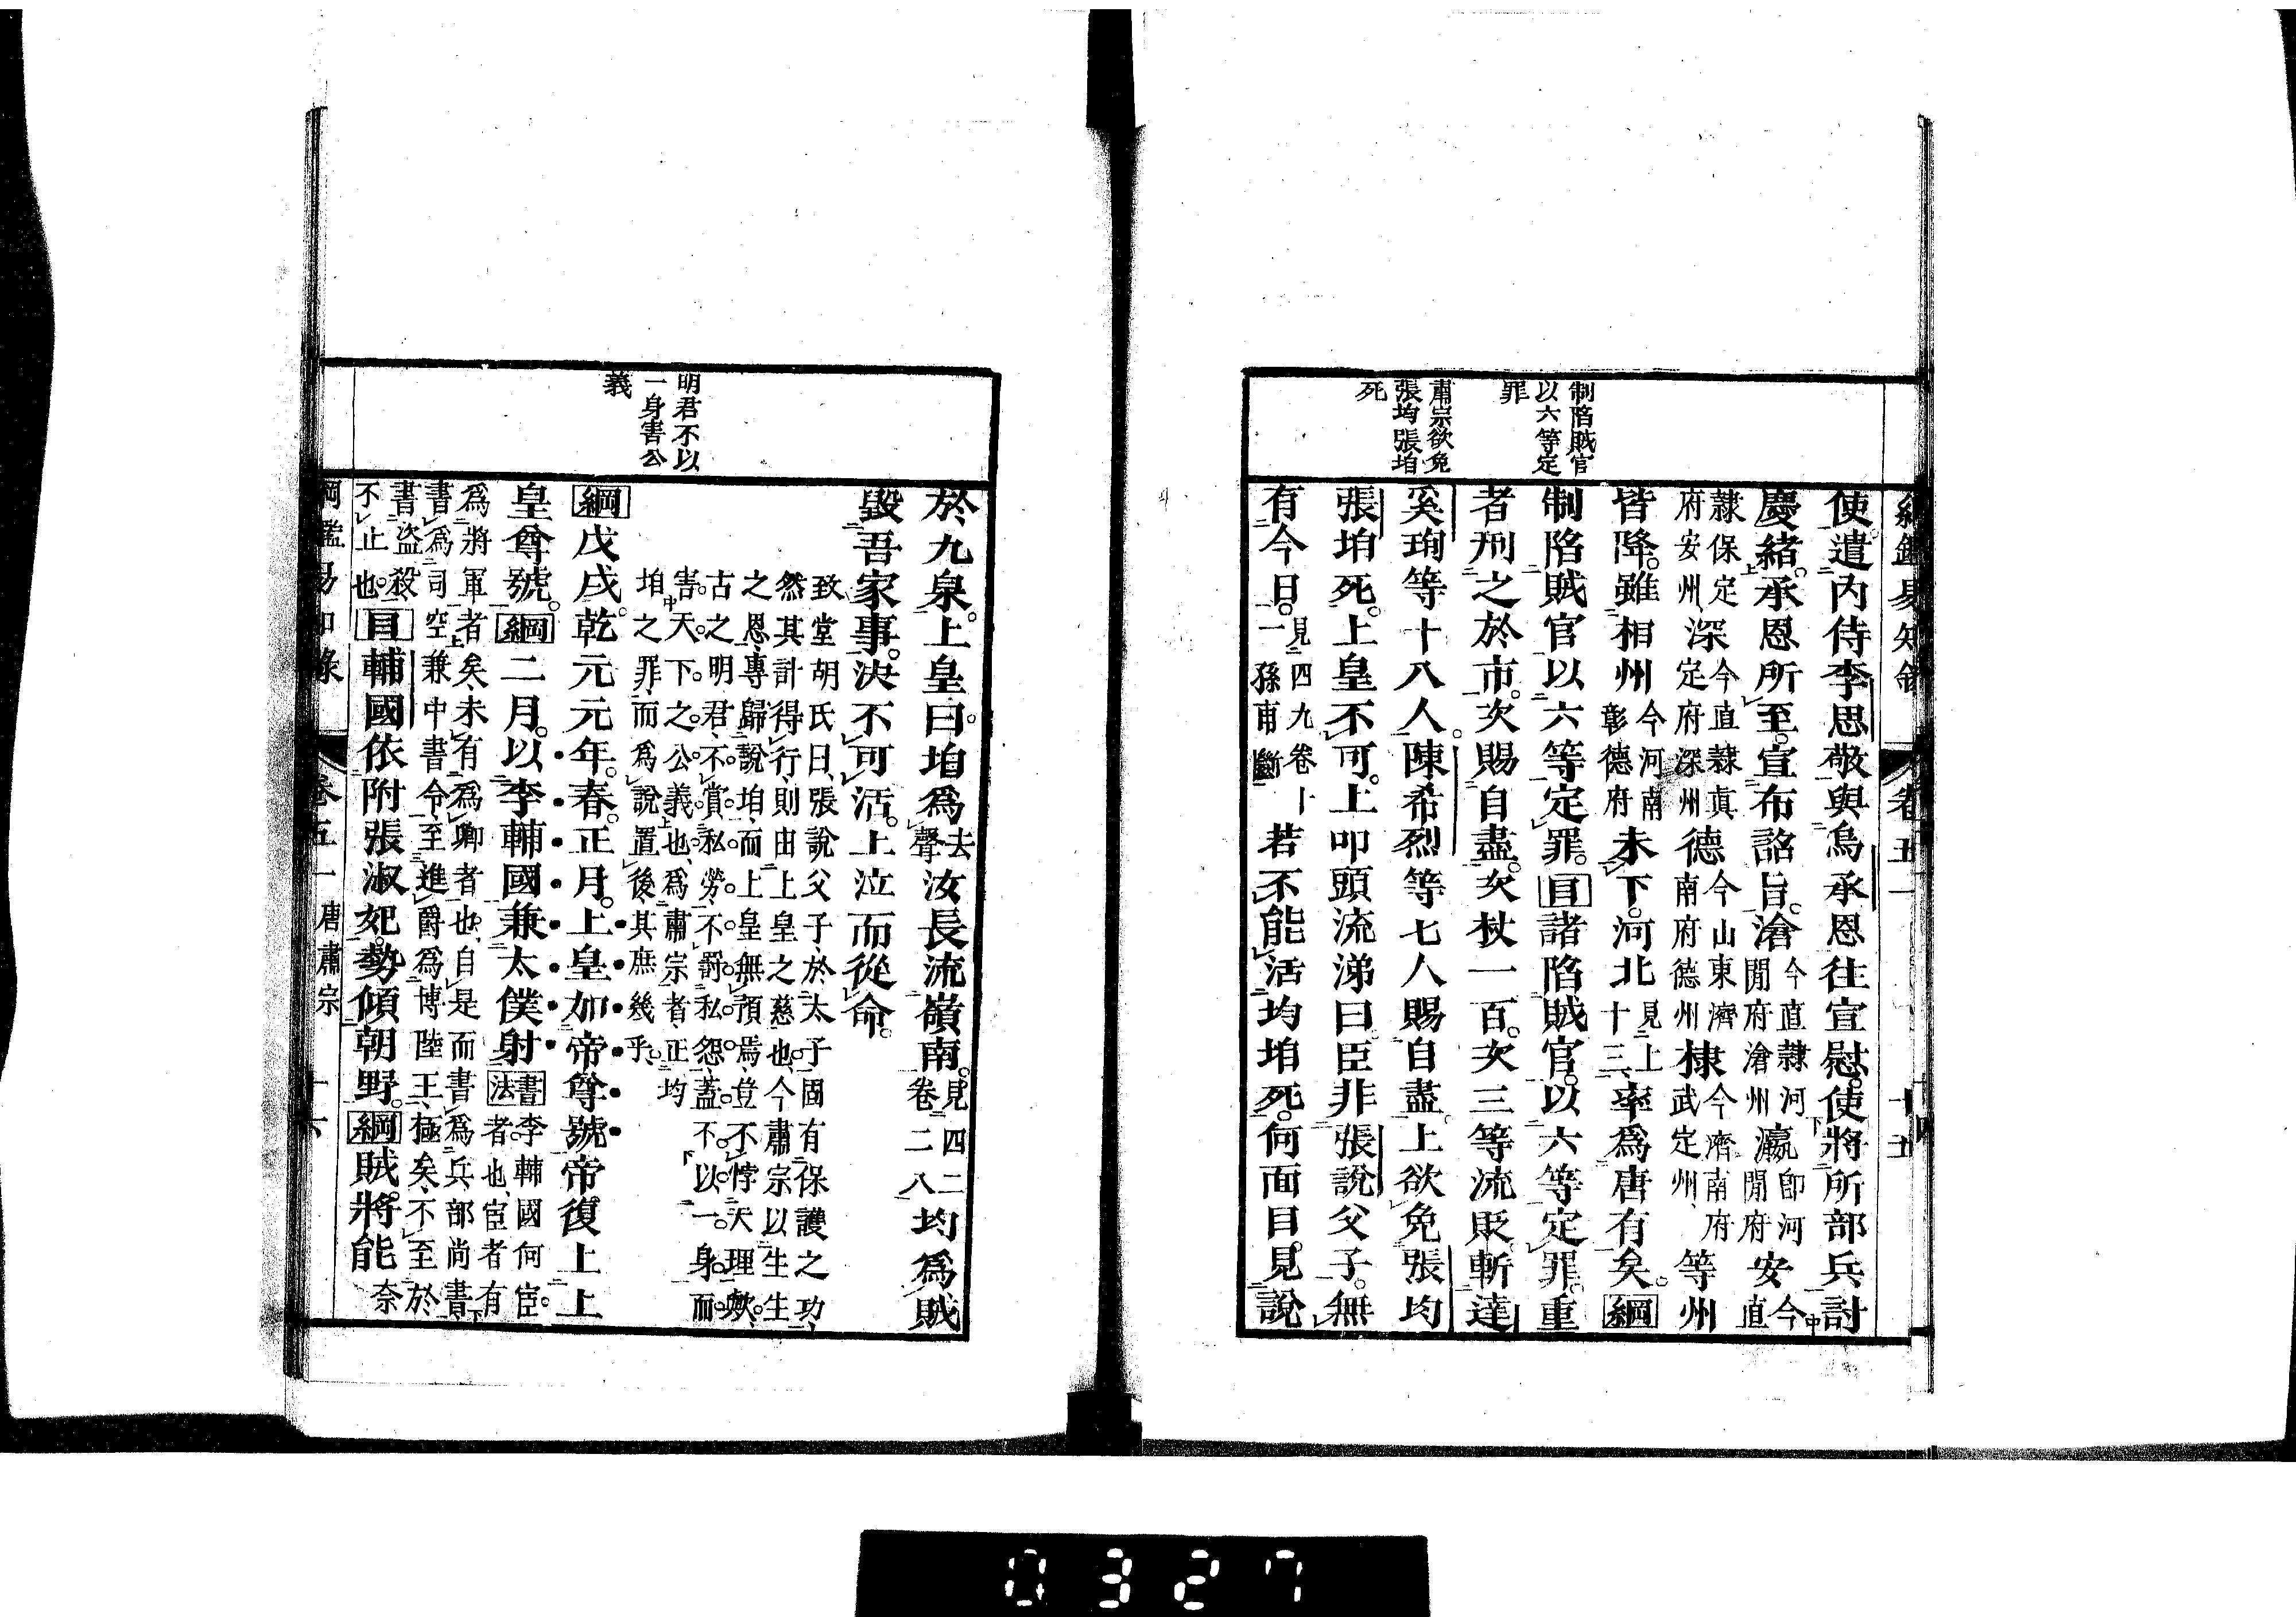 制陷賊官
以六等定
罪
肅宗欲免
張均張垍
死
使遣內侍李思敬與烏承恩往宣慰使將所部兵討
慶緒承恩所至宣布詔旨滄今直隸河閒府滄州瀛卽河閒府安今直
隸保定府安州深今直隸眞定府深州德今山東濟南府德州棣今濟南府武定州等州
皆降雖相州今河南彰德府未下河北見上十三率爲唐有矣綱
制陷賊官以六等定罪目諸陷賊官以六等定罪重
者刑之於市次賜自盡次杖一百次三等流貶斬達
奚珣等十八人陳希烈等七人賜自盡上欲免張均
張垍死上皇不可上叩頭流涕曰臣非張說父子無
有今日見四九卷十一孫甫斷若不能活均垍死何面目見說
明君不以
一身害公
義
於九泉上皇曰垍爲去聲汝長流嶺南見四二卷二八均爲賊
毀吾家事決不可活上泣而從命
致堂胡氏曰張說父子於太子固有保護之功
然其計得行則由上皇之慈也今肅宗以生生
之恩專歸說垍而上皇無預焉豈不悖天理歟
古之明君不賞私勞不罰私怨蓋不以一身而
害天下之公義也爲肅宗者正均
垍之罪而爲說置後其庶幾乎
綱戊戌乾元元年春正月上皇加帝尊號帝復上上
皇尊號綱二月以李輔國兼太僕射書法書李輔國何宦者也宦者有
爲將軍者矣未有爲卿者也自是而書爲兵部尚書
書爲司空兼中書令至進爵爲博陸王極矣不至於
書盜殺不止也目輔國依附張淑妃勢傾朝野綱賊將能奈
綱鑑易知錄 卷五一 唐肅宗 十六